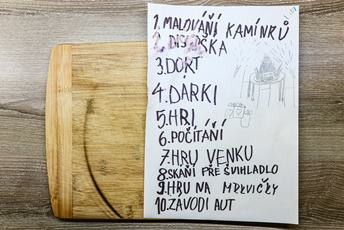 1. MALOVÁŇÍ KAMÍNKŮ
2. DISKOŠKA
3. DORT
4. DÁRKI
5. HRI
6. POČÍTÁNÍ
7. HRU VENKU
8. SKAŇÍ PŘE ŠVIHLADLO
9. HRU NA MRKVIČKY
10. ZÁVODI AUT